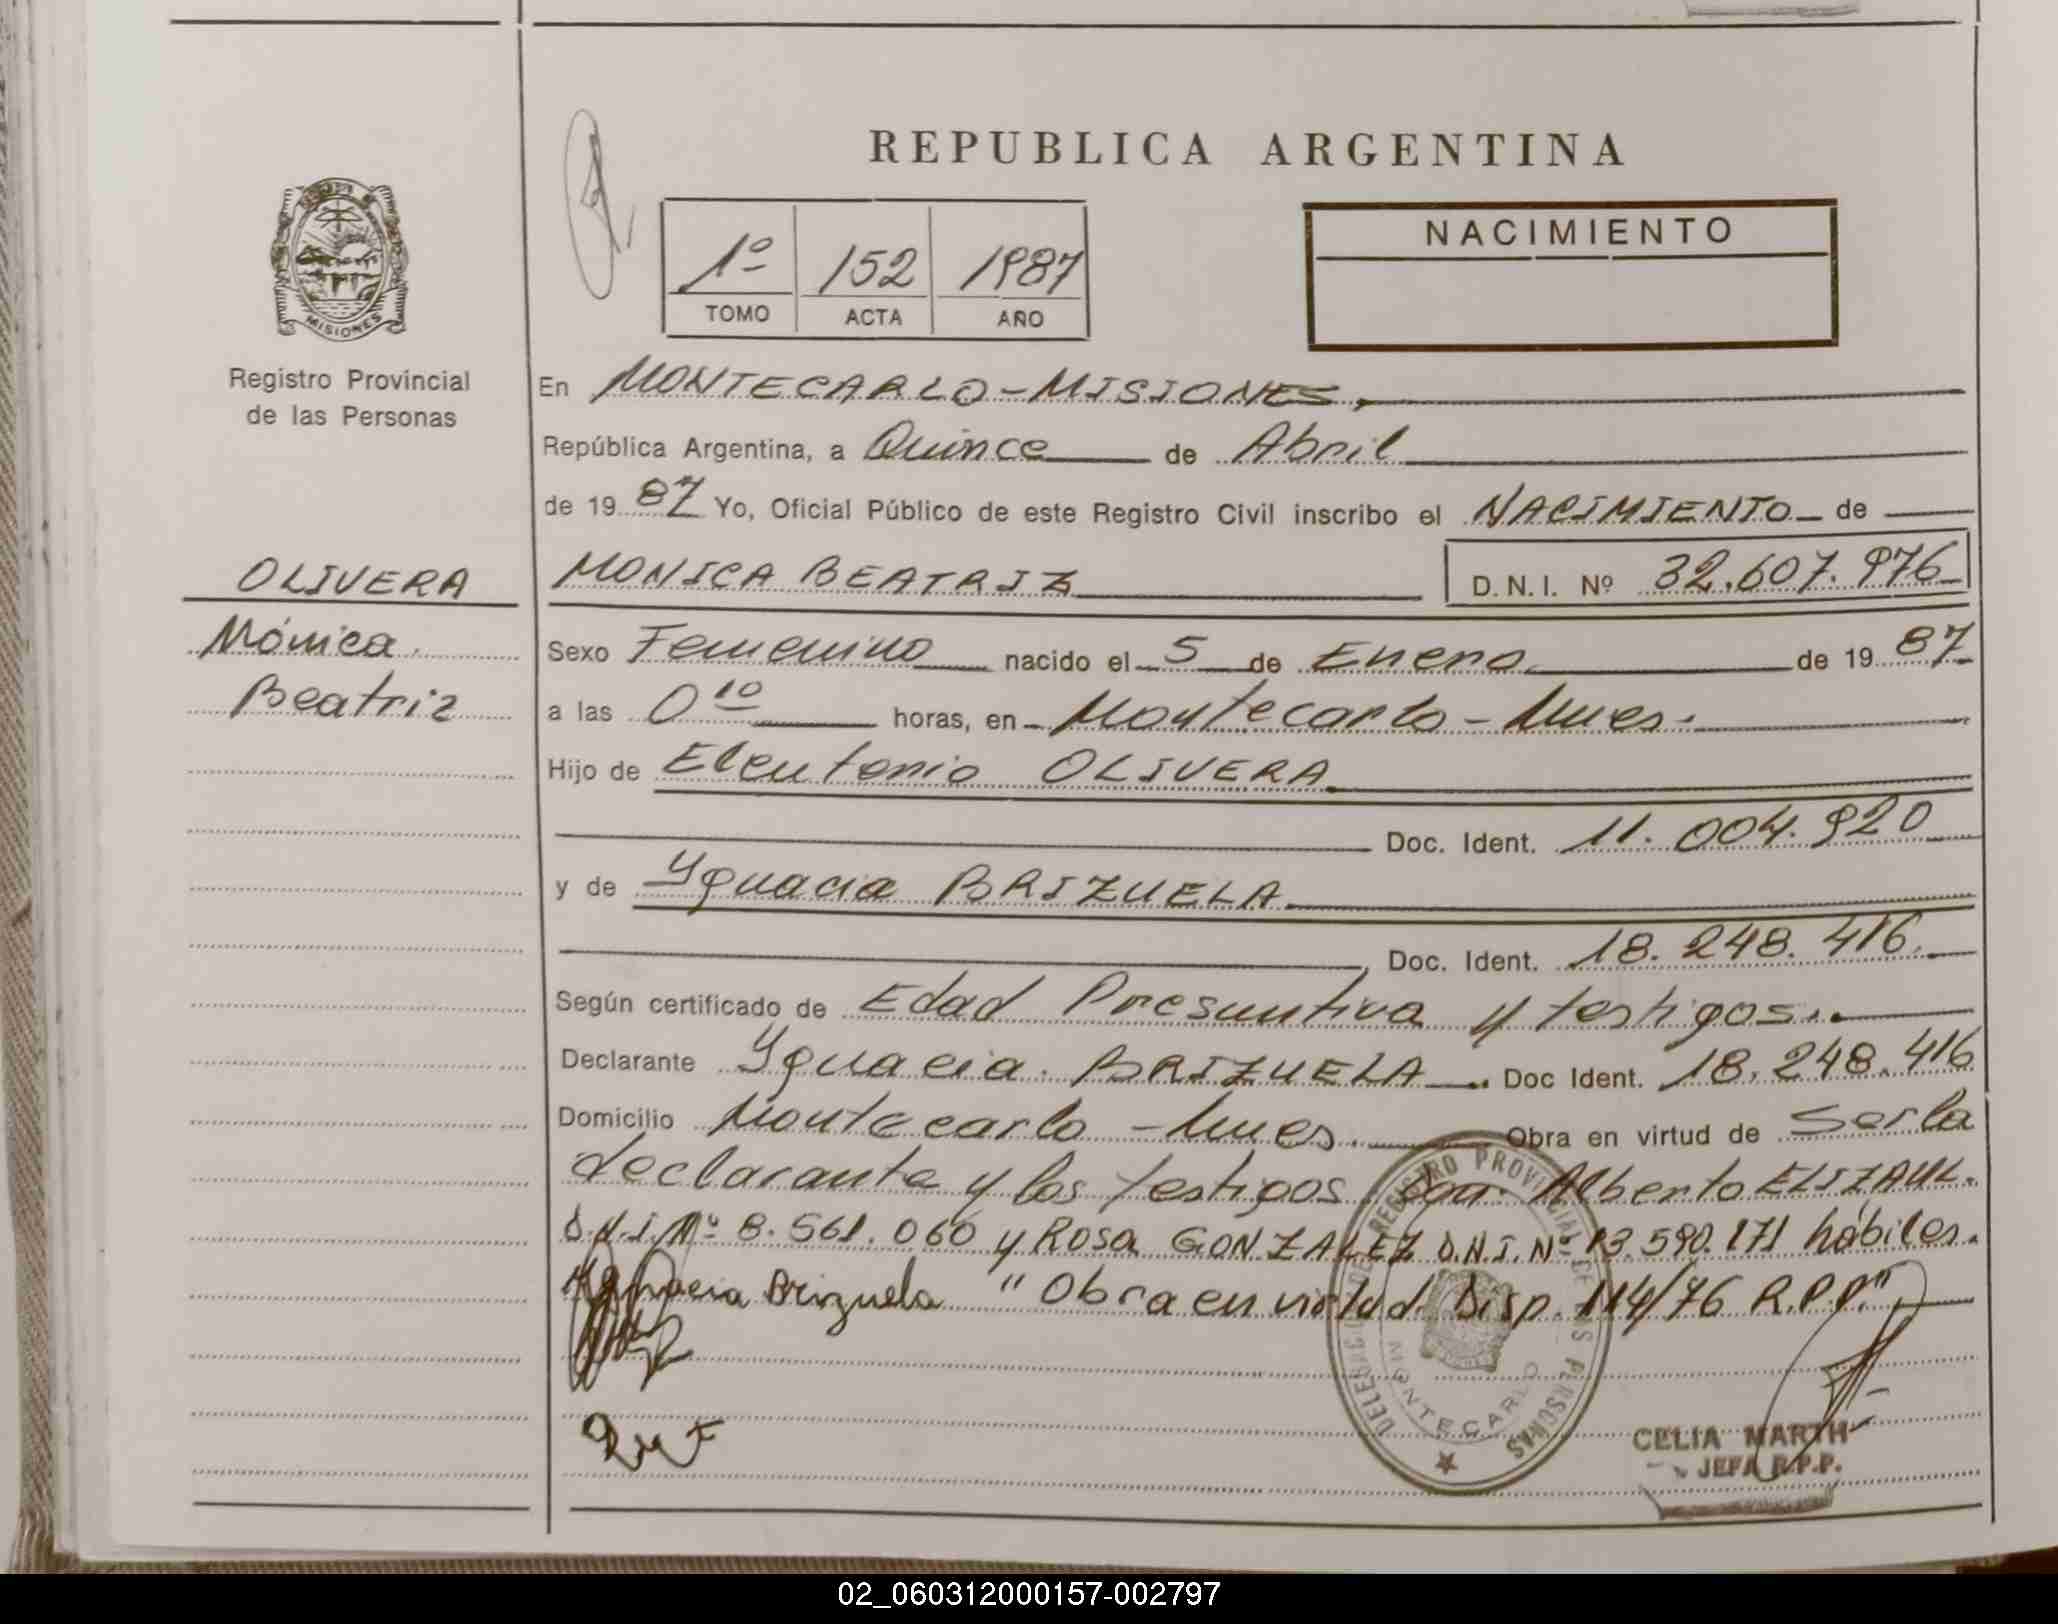 REPUBLICA ARGENTINA
NACIMIENTO
1º 152 1987
TOMO ACTA AÑO
MISIONES
Registro Provincial
de las Personas
En MONTECARLO-MISIONES,
República Argentina, a Quince de Abril
de 1987 Yo, Oficial Público de este Registro Civil inscribo el NACIMIENTO de
OLIVERA
MONICA BEATRIZ D.N.I. Nº 32.607.976
Mónica
Beatriz
Sexo Femenino nacido el 5 de Enero de 1987
a las 0 10 horas, en Montecarlo-Mnes.
Hijo de Eleuterio OLIVERA
Doc. Ident. 11.004.920
y de Ygnacia BRIZUELA
Doc. Ident. 18.248.416.
Según certificado de Edad Presuntiva y testigos..
Declarante Ygnacia BRIZUELA Doc Ident. 18.248.416
Domicilio Montecarlo-Mnes. Obra en virtud de Ser la
declarante y los testigos Alberto ELIZAUL.
D.N.I. Nº 8.561.060 y ROSA GONZALEZ D.N.I. Nº 13.590.171 hábiles.
Ygnacia Brizuela "Obra en virtud. Disp. 114/76 R.P.P."
DELEGACION DEL REGISTRO PROVINCIAL DE LAS PERSONAS
MONTECARLO
CELIA MARTH
JEFA R.P.P.
02_060312000157-002797